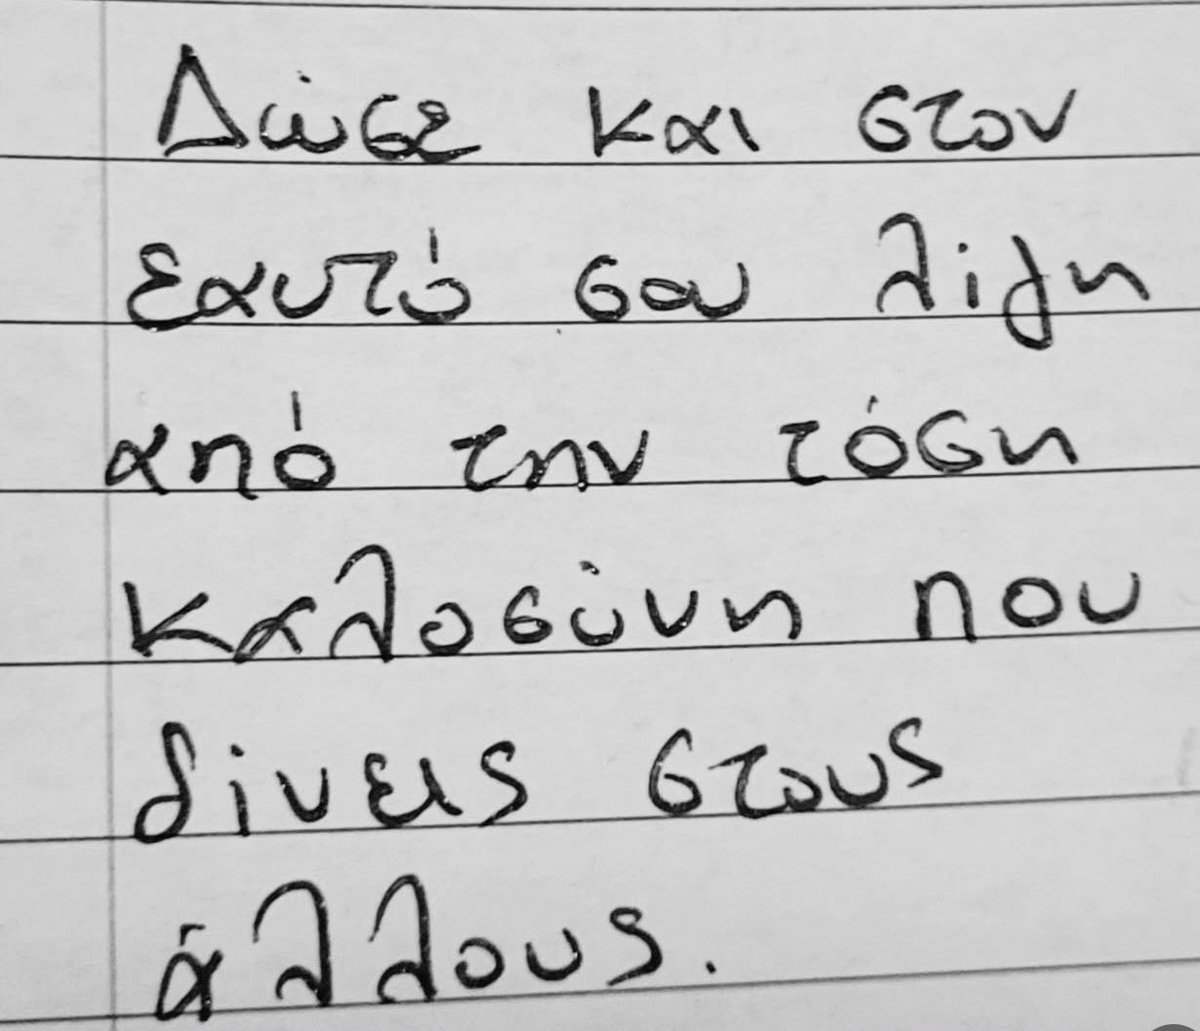 Δώσε και στον
εαυτό σου λίγη
από την τόση
καλοσύνη που
δίνεις στους
άλλους.